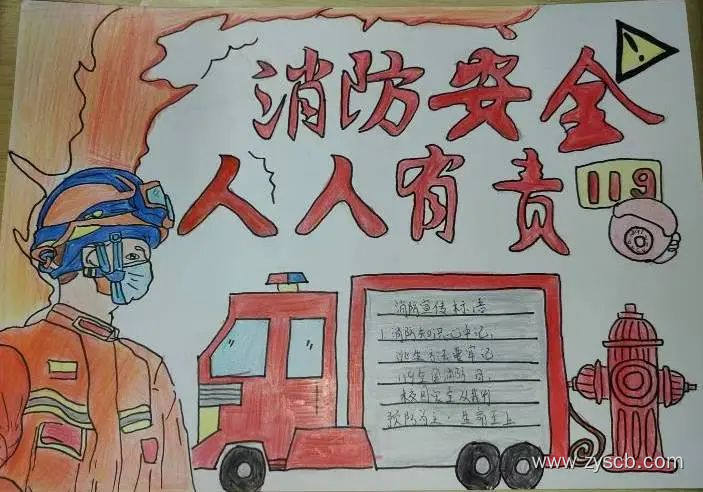 消防安全
人人有责
119
消防宣传标语
1.消防知识心中记,
逃生方法要牢记
119全国消防日,
校园安全从我行
预防为主·生命至上
www.zyscb.com